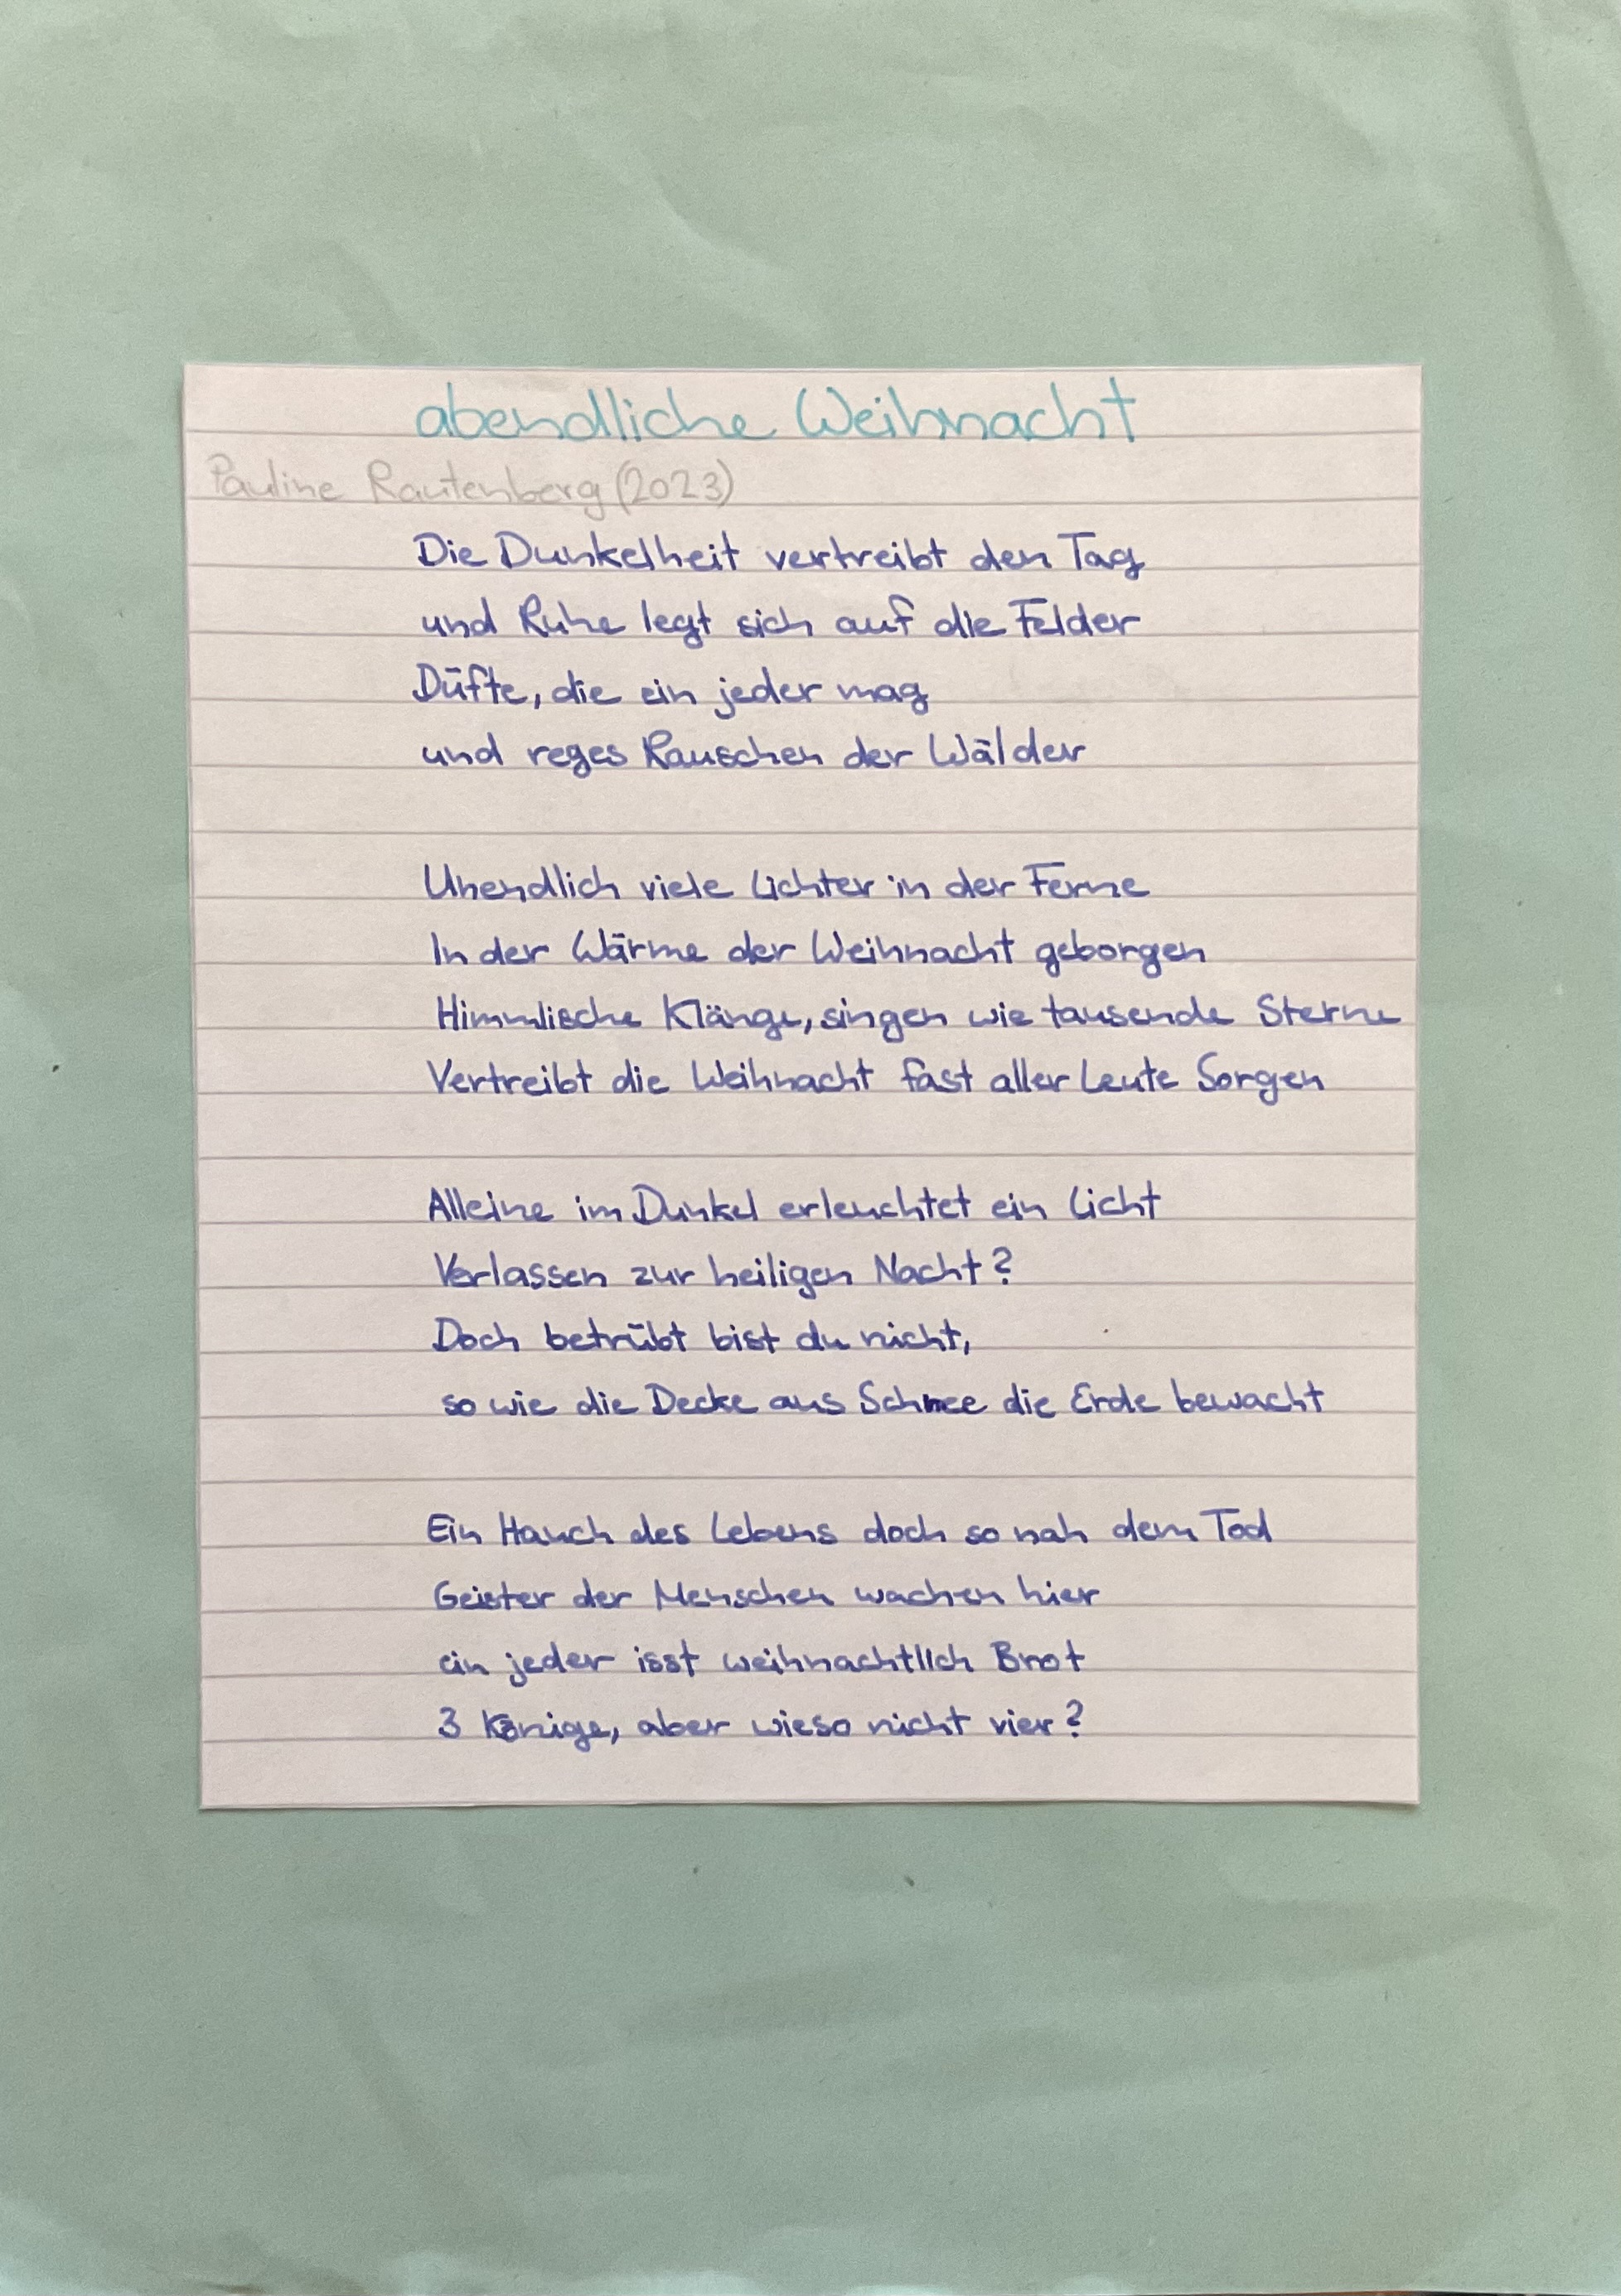 abendliche Weihnacht
Pauline Rautenberg (2023)
Die Dunkelheit vertreibt den Tag
und Ruhe legt sich auf die Felder
Düfte, die ein jeder mag
und reges Rauschen der Wälder
Unendlich viele Lichter in der Ferne
In der Wärme der Weihnacht geborgen
Himmlische Klänge, singen wie tausende Sterne
Vertreibt die Weihnacht fast aller Leute Sorgen
Alleine im Dunkel erleuchtet ein Licht
Verlassen zur heiligen Nacht?
Doch betrübt bist du nicht,
so wie die Decke aus Schnee die Erde bewacht
Ein Hauch des Lebens doch so nah dem Tod
Geister der Menschen wachen hier
ein jeder isst weihnachtlich Brot
3 Könige, aber wieso nicht vier?